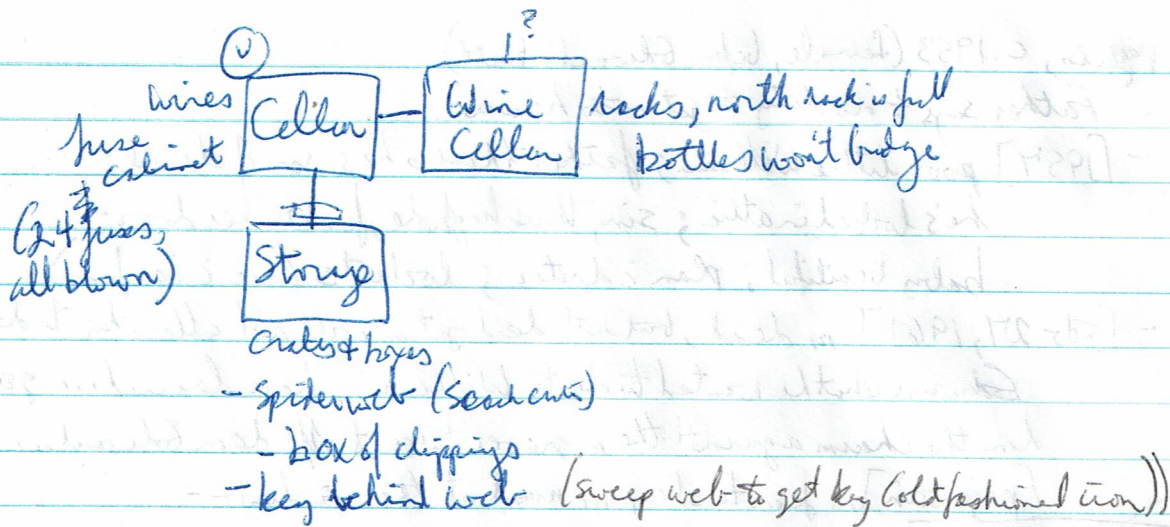 ?
U
wires
Cellar
Wine
Cellar
racks, north rack is full
bottles won't budge
fuse
cabinet
(24 fuses,
all blown)
Storage
crates + boxes
- spiderweb (
- box of clippings
- key behind web (sweep web to get key (old fashioned iron))